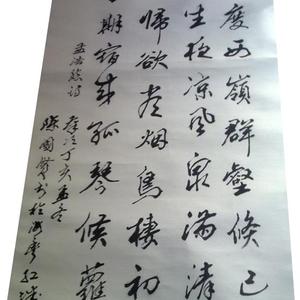 度西嶺群壑倏已
生夜凉風泉滿清
歸欲盡烟鳥棲初
期宿來孤琴候蘿
孟浩然詩
丁亥孟冬
陳國